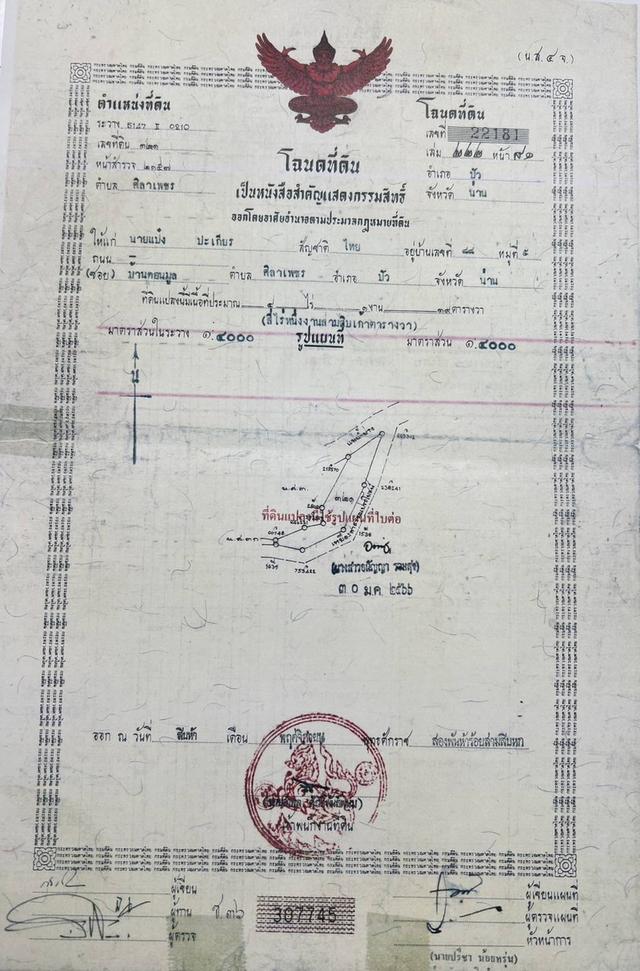 (น.ส. ๔ จ.)
ตำแหน่งที่ดิน
ระวาง 5147 II 0210
เลขที่ดิน ๓๒๑
หน้าสำรวจ ๒๑๔๗
ตำบล ศิลาเพชร
โฉนดที่ดิน
เลขที่ 22181
เล่ม ๒๒๒ หน้า ๘๑
อำเภอ ปัว
จังหวัด น่าน
โฉนดที่ดิน
เป็นหนังสือสำคัญแสดงกรรมสิทธิ์
ออกโดยอาศัยอำนาจตามประมวลกฎหมายที่ดิน
ให้แก่ นายแปง ปะเกียร สัญชาติ ไทย อยู่บ้านเลขที่ ๘๘ หมู่ที่ ๕
ถนน -
(ซอย) บ้านดอนมูล ตำบล ศิลาเพชร อำเภอ ปัว จังหวัด น่าน
ที่ดินแปลงนี้มีเนื้อที่ประมาณ ๔ ไร่ ๑ งาน ๓๙ ตารางวา
(สี่ไร่หนึ่งงานสามสิบเก้าตารางวา)
มาตราส่วนในระวาง ๑:๔๐๐๐ รูปแผนที่ มาตราส่วน ๑:๔๐๐๐
น
๓๒๑
ที่ดินแปลงนี้ใช้รูปแผนที่ใบต่อ
๓๐ ม.ค. ๒๕๖๖
ออก ณ วันที่ สิบห้า เดือน พฤศจิกายน พุทธศักราช สองพันห้าร้อยสามสิบหก
เจ้าพนักงานที่ดิน
ผู้เขียน
ผู้ทาน
ผู้ตรวจ
ช.๓๖ 307745
ผู้เขียนแผนที่
ผู้ตรวจแผนที่
หัวหน้าการ
(นายปรีชา น้อยหร่น)